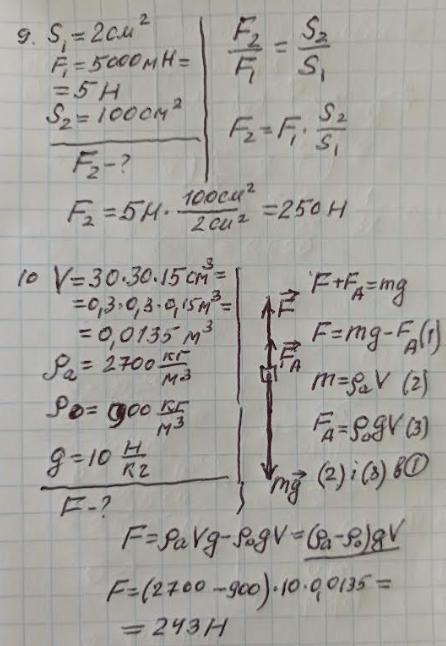 9. S₁ = 2см²
F₁ = 5000мН =
= 5Н
S₂ = 100см²
F₂ - ?
F₂/F₁ = S₂/S₁
F₂ = F₁ · S₂/S₁
F₂ = 5Н · 100см²/2см² = 250Н
10 V = 30·30·15см³
= 0,3·0,3·0,15м³ =
= 0,0135 м³
ρₐ = 2700 кг/м³
ρ₀ = 900 кг/м³
g = 10 Н/кг
F - ?
F
F_A
mg
F + F_A = mg
F = mg - F_A (1)
m = ρₐV (2)
F_A = ρ₀gV (3)
(2) і (3) в ①
F = ρₐVg - ρ₀gV = (ρₐ - ρ₀)gV
F = (2700 - 900)·10·0,0135 =
= 243Н